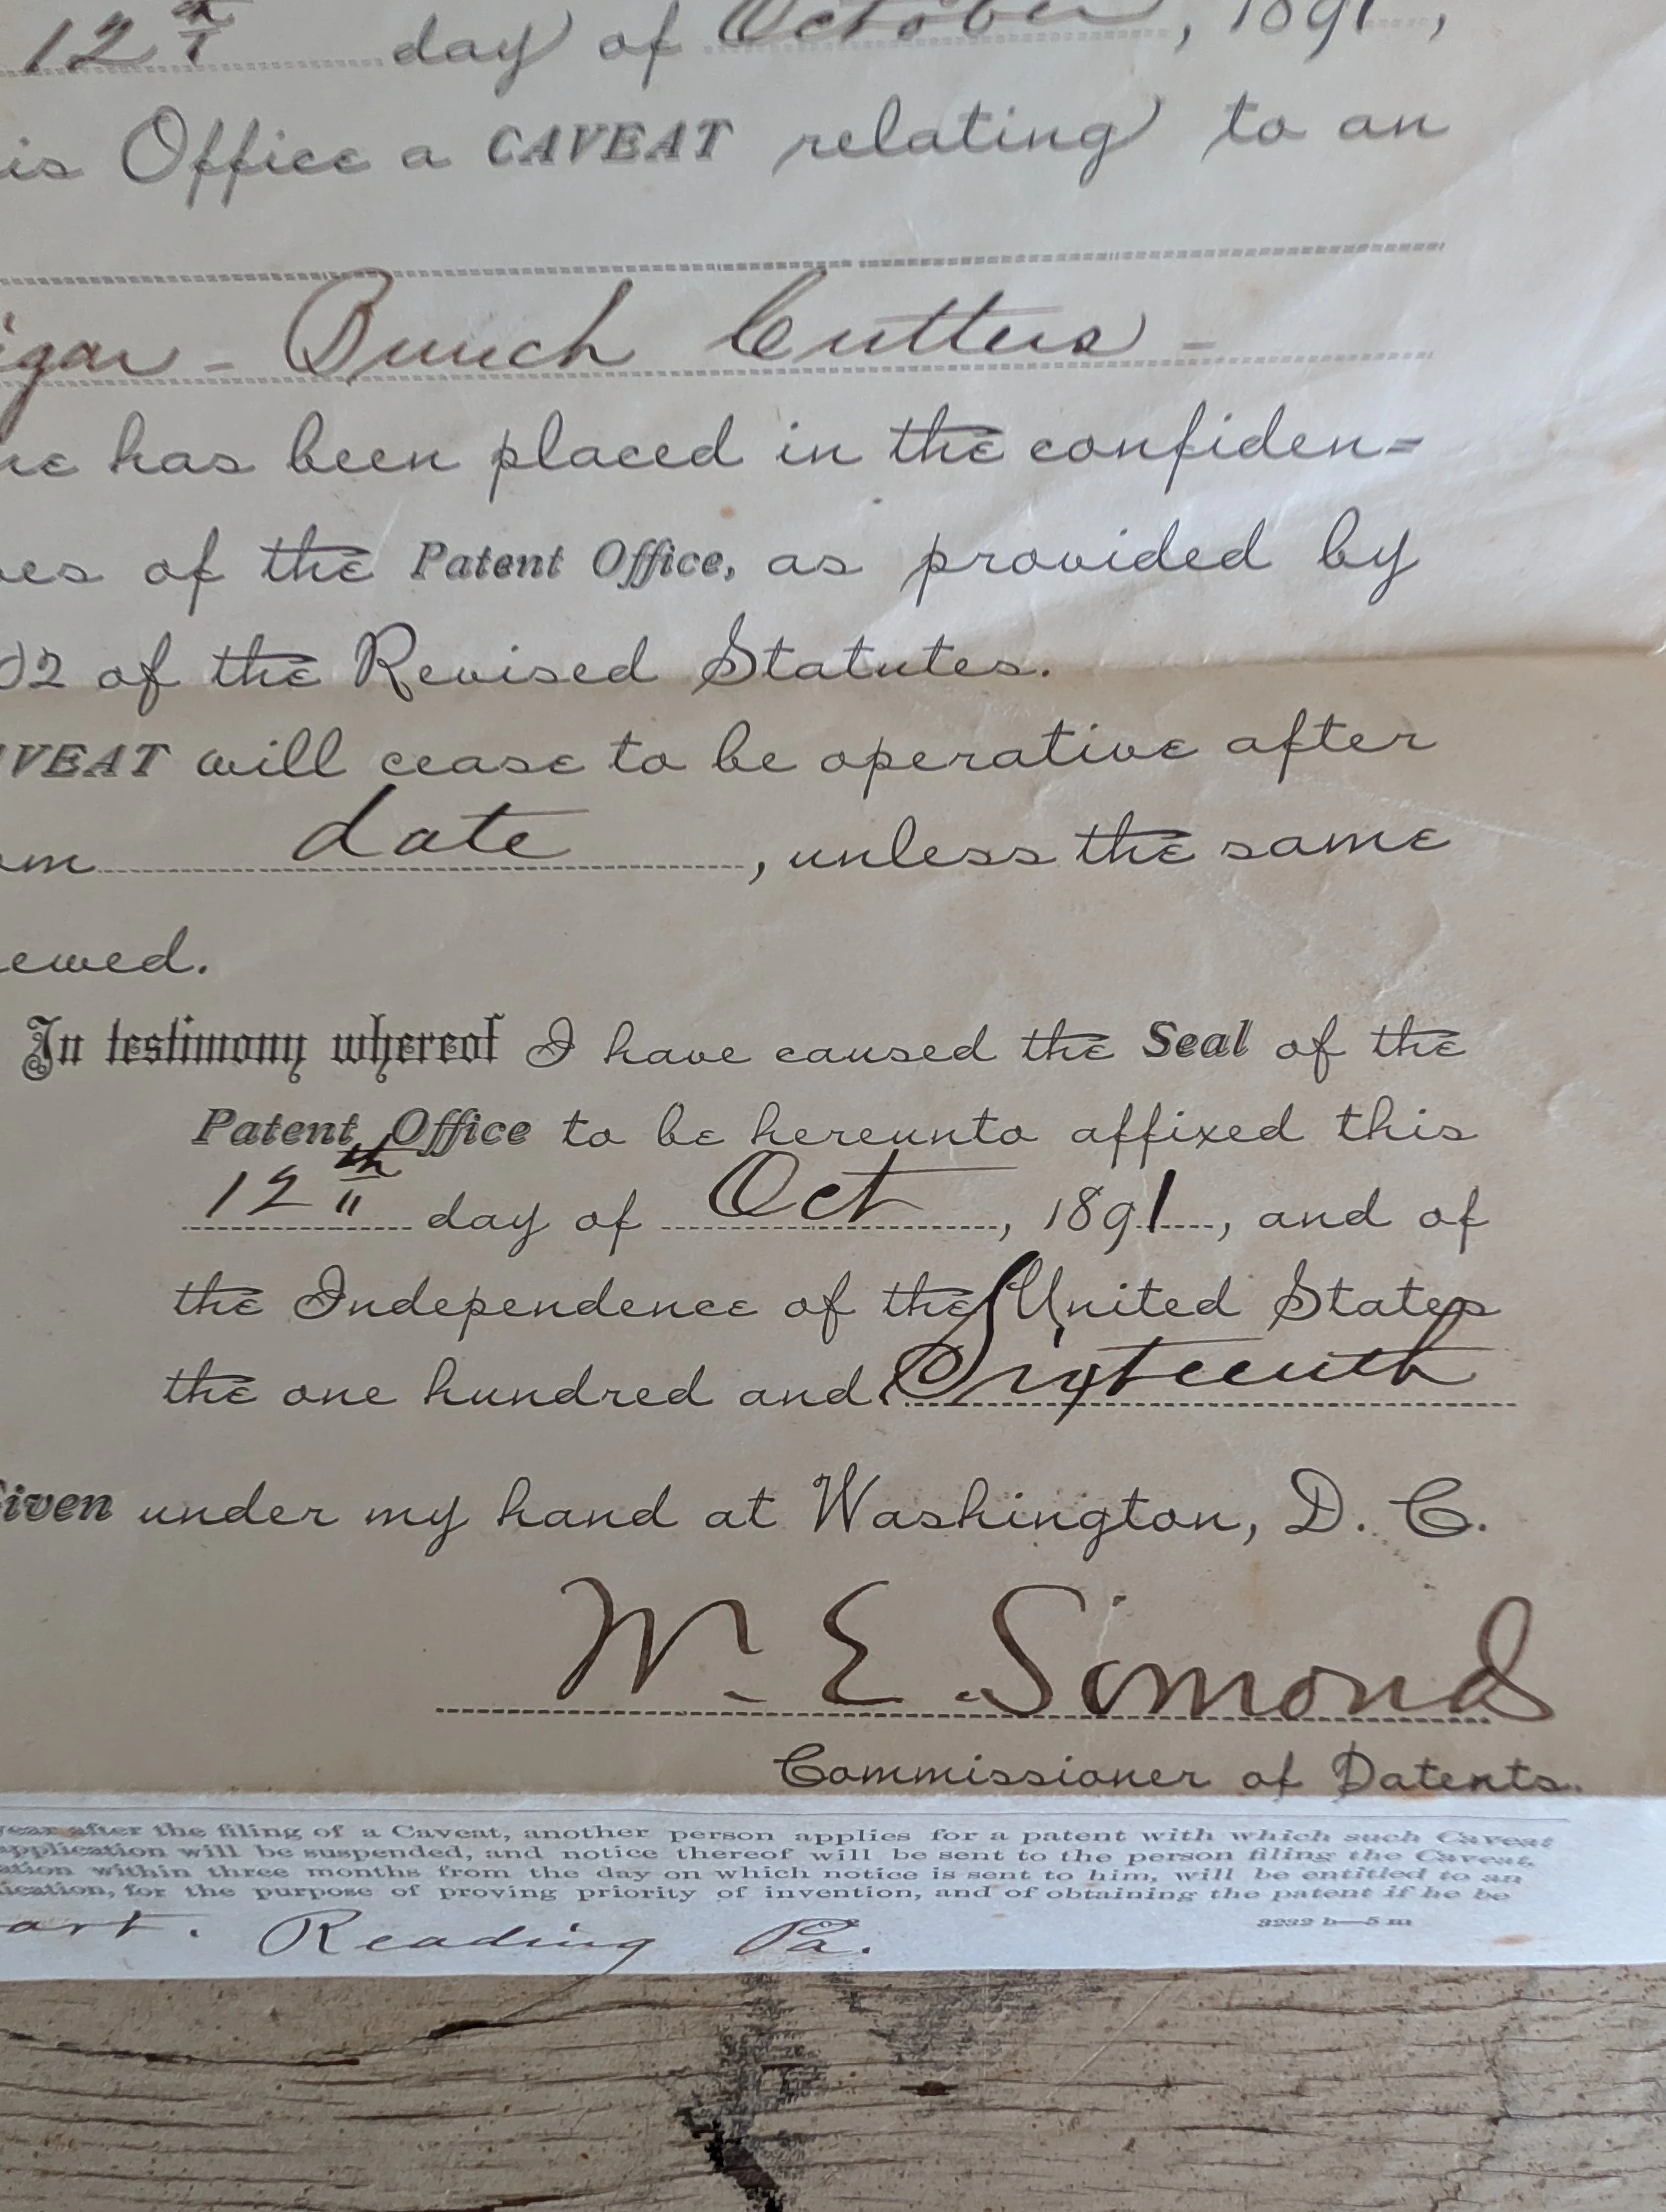 12th day of October, 1891,
is Office a CAVEAT relating to an
igar - Bunch Cutters -
has been placed in the confiden=
of the Patent Office, as provided by
02 of the Revised Statutes.
VEAT will cease to be operative after
om date, unless the same
ewed.
In testimony whereof I have caused the Seal of the
Patent Office to be hereunto affixed this
12th day of Oct, 1891, and of
the Independence of the United States
the one hundred and Sixteenth
iven under my hand at Washington, D. C.
W. E. Simonds
Commissioner of Patents.
year after the filing of a Caveat, another person applies for a patent with which such Caveat
application will be suspended, and notice thereof will be sent to the person filing the Caveat,
ation within three months from the day on which notice is sent to him, will be entitled to an
ication, for the purpose of proving priority of invention, and of obtaining the patent if he be
3232 b—5 m
art. Reading Pa.